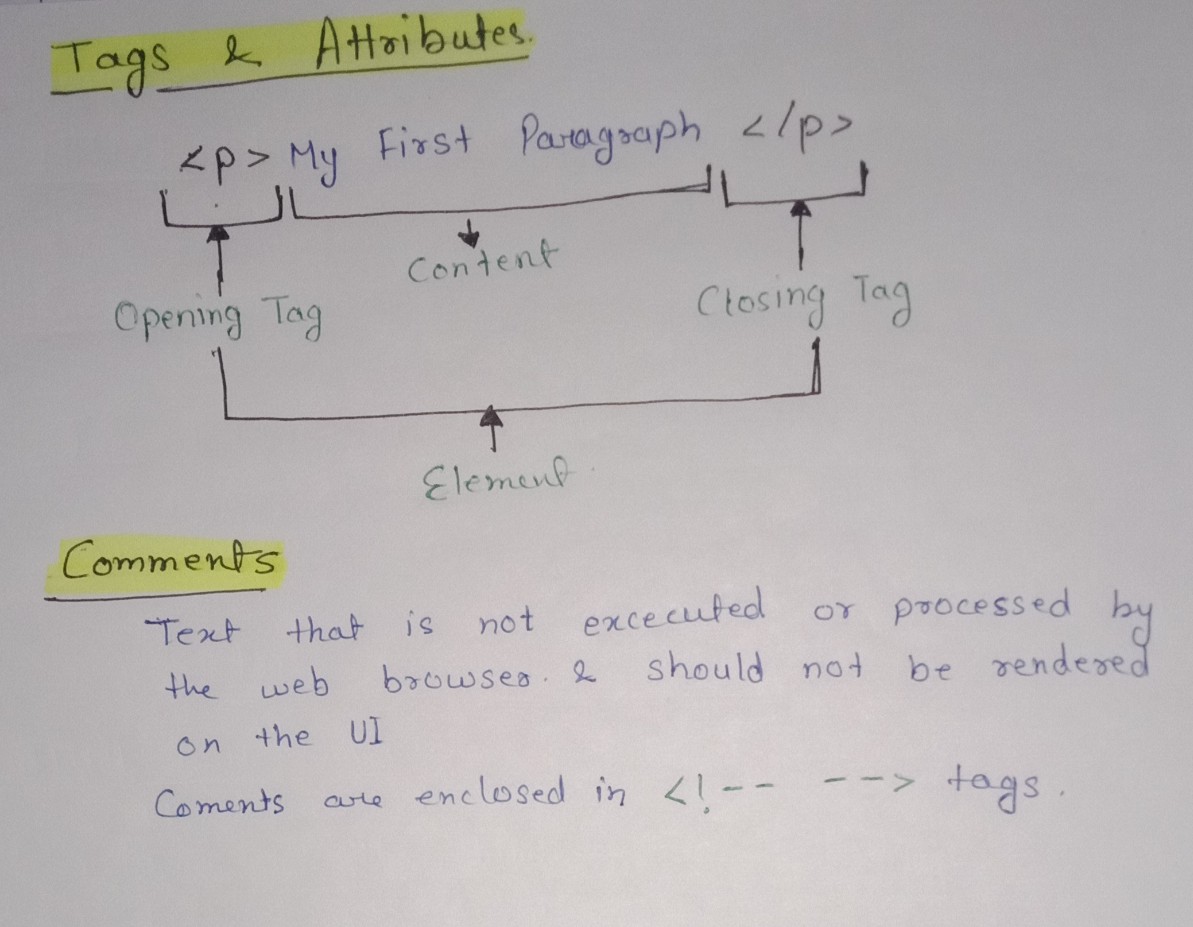 Tags & Attributes.
<p> My First Paragraph </p>
Content
Opening Tag
Closing Tag
Element
Comments
Text that is not excecuted or processed by
the web browser. & should not be rendered
on the UI
Coments are enclosed in <!-- --> tags.